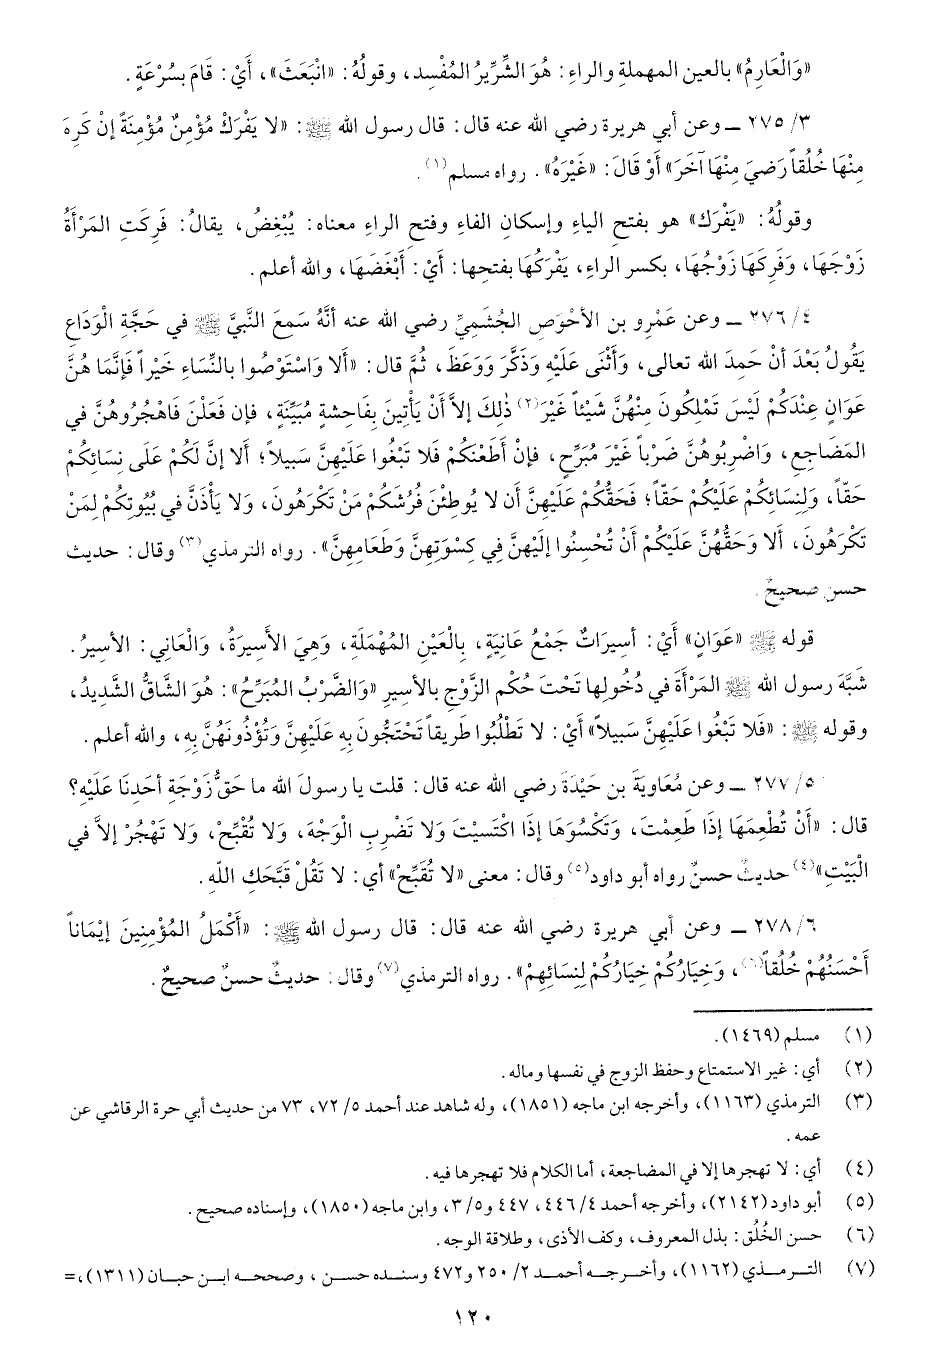 «وَالْعَارِمُ» بالعين المهملةِ والراءِ: هُوَ الشِّرِّيرُ المُفْسِد، وقولُهُ: «انْبَعَثَ»، أَيْ: قَامَ بسُرْعَةٍ.
٢٧٥/٣ ـ وعن أبي هريرة رضي الله عنه قال: قال رسول الله ﷺ: «لا يَفْرَكْ مُؤْمِنٌ مُؤْمِنَةً إنْ كَرِهَ
مِنْهَا خُلُقاً رَضِيَ مِنْهَا آخَرَ» أَوْ قَالَ: «غَيْرَهُ». رواه مسلم(١).
وقولُهُ: «يَفْرَك» هو بفتح الياءِ وإسكان الفاءِ وفتح الراءِ معناه: يُبْغِضُ، يقالُ: فَرِكَتِ المَرْأَةُ
زَوْجَهَا، وَفَرِكَهَا زَوْجُهَا، بكسر الراءِ، يَفْرَكُهَا بفتحِها: أَيْ: أَبْغَضَهَا، والله أعلم.
٢٧٦/٤ ـ وعن عَمْرِو بن الأَحْوَصِ الجُشَمِيِّ رضي الله عنه أنَّهُ سَمِعَ النَّبيَّ ﷺ في حَجَّةِ الْوَدَاعِ
يَقُولُ بَعْدَ أَنْ حَمِدَ الله تعالى، وَأَثْنَى عَلَيْهِ وَذَكَّرَ وَوَعَظَ، ثُمَّ قال: «أَلا وَاسْتَوْصُوا بالنِّسَاءِ خَيْراً فَإنَّمَا هُنَّ
عَوَانٍ عِنْدَكُمْ لَيْسَ تَمْلِكُونَ مِنْهُنَّ شَيْئاً غَيْرَ(٢) ذٰلِكَ إلاَّ أَنْ يَأْتِينَ بِفَاحِشةٍ مُبَيِّنَةٍ، فإن فَعَلْنَ فَاهْجُرُوهُنَّ في
المَضَاجعِ، وَاضْرِبُوهُنَّ ضَرْباً غَيْرَ مُبَرِّحٍ، فإنْ أَطَعْنَكُمْ فَلا تَبْغُوا عَلَيْهِنَّ سَبِيلاً؛ أَلا إنَّ لَكُمْ عَلَى نِسَائِكُمْ
حَقّاً، وَلِنِسَائِكُمْ عَلَيْكُمْ حَقّاً؛ فَحَقُّكُمْ عَلَيْهِنَّ أَن لا يُوطِئْنَ فُرُشَكُمْ مَنْ تَكْرَهُونَ، وَلا يَأْذَنَّ في بُيُوتِكُمْ لِمَنْ
تَكْرَهُونَ، أَلا وَحَقُّهُنَّ عَلَيْكُمْ أَنْ تُحْسِنُوا إلَيْهِنَّ فِي كِسْوَتِهِنَّ وَطَعَامِهِنَّ». رواه الترمذي(٣) وقال: حديث
حسن صحيحٌ.
قوله ﷺ «عَوَانٍ» أَيْ: أسِيرَاتٌ جَمْعُ عَانِيَةٍ، بِالْعَيْنِ المُهْمَلَةِ، وَهِيَ الأَسِيرَةُ، وَالْعَاني: الأسيرُ.
شَبَّهَ رسول الله ﷺ المَرْأَةَ في دُخُولِها تَحْتَ حُكْمِ الزَّوْجِ بالأسيرِ «وَالضَّرْبُ المُبَرِّحُ»: هُوَ الشَّاقُّ الشَّدِيدُ،
وقوله ﷺ: «فَلا تَبْغُوا عَلَيْهِنَّ سَبِيلاً» أَيْ: لا تَطْلُبُوا طَرِيقاً تَحْتَجُّونَ بِهِ عَلَيْهِنَّ وَتُؤْذُونَهُنَّ بِهِ، والله أعلم.
٢٧٧/٥ ـ وعن مُعَاوِيَةَ بنِ حَيْدَةَ رضي الله عنه قال: قلت يا رسولَ الله ما حَقُّ زَوْجَةِ أَحَدِنَا عَلَيْهِ؟
قال: «أَنْ تُطْعِمَهَا إذَا طَعِمْتَ، وَتَكْسُوَهَا إذَا اكْتَسَيْتَ وَلا تَضْرِبِ الْوَجْهَ، وَلا تُقَبِّحْ، وَلا تَهْجُرْ إلاَّ في
الْبَيْتِ»(٤) حديثٌ حسنٌ رواه أبو داود(٥) وقال: معنى «لا تُقَبِّحْ» أي: لا تَقُلْ قَبَّحَكِ اللهُ.
٢٧٨/٦ ـ وعن أبي هريرة رضي الله عنه قال: قال رسول الله ﷺ: «أَكْمَلُ المُؤْمِنِينَ إيْمَاناً
أَحْسَنُهُمْ خُلُقاً(٦)، وَخِيَارُكُمْ خِيَارُكُمْ لِنِسَائِهِمْ». رواه الترمذي(٧) وقال: حديثٌ حسنٌ صحيحٌ.
(١) مسلم (١٤٦٩).
(٢) أي: غير الاستمتاع وحفظ الزوج في نفسها وماله.
(٣) الترمذي (١١٦٣)، وأخرجه ابن ماجه (١٨٥١)، وله شاهد عند أحمد ٥/ ٧٢، ٧٣ من حديث أبي حرة الرقاشي عن
عمه.
(٤) أي: لا تهجرها إلا في المضاجعة، أما الكلام فلا تهجرها فيه.
(٥) أبو داود (٢١٤٢)، وأخرجه أحمد ٤/ ٤٤٦، ٤٤٧ و٥/ ٣، وابن ماجه (١٨٥٠)، وإسناده صحيح.
(٦) حسن الخُلُق: بذل المعروف، وكف الأذى، وطلاقة الوجه.
(٧) الترمذي (١١٦٢)، وأخرجه أحمد ٢/ ٢٥٠ و٤٧٢ وسنده حسن، وصححه ابن حبان (١٣١١)،=
١٢٠